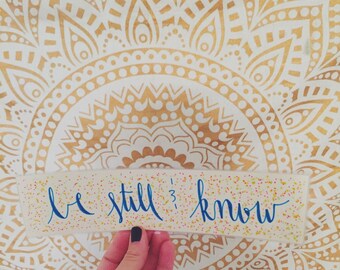 be still & know